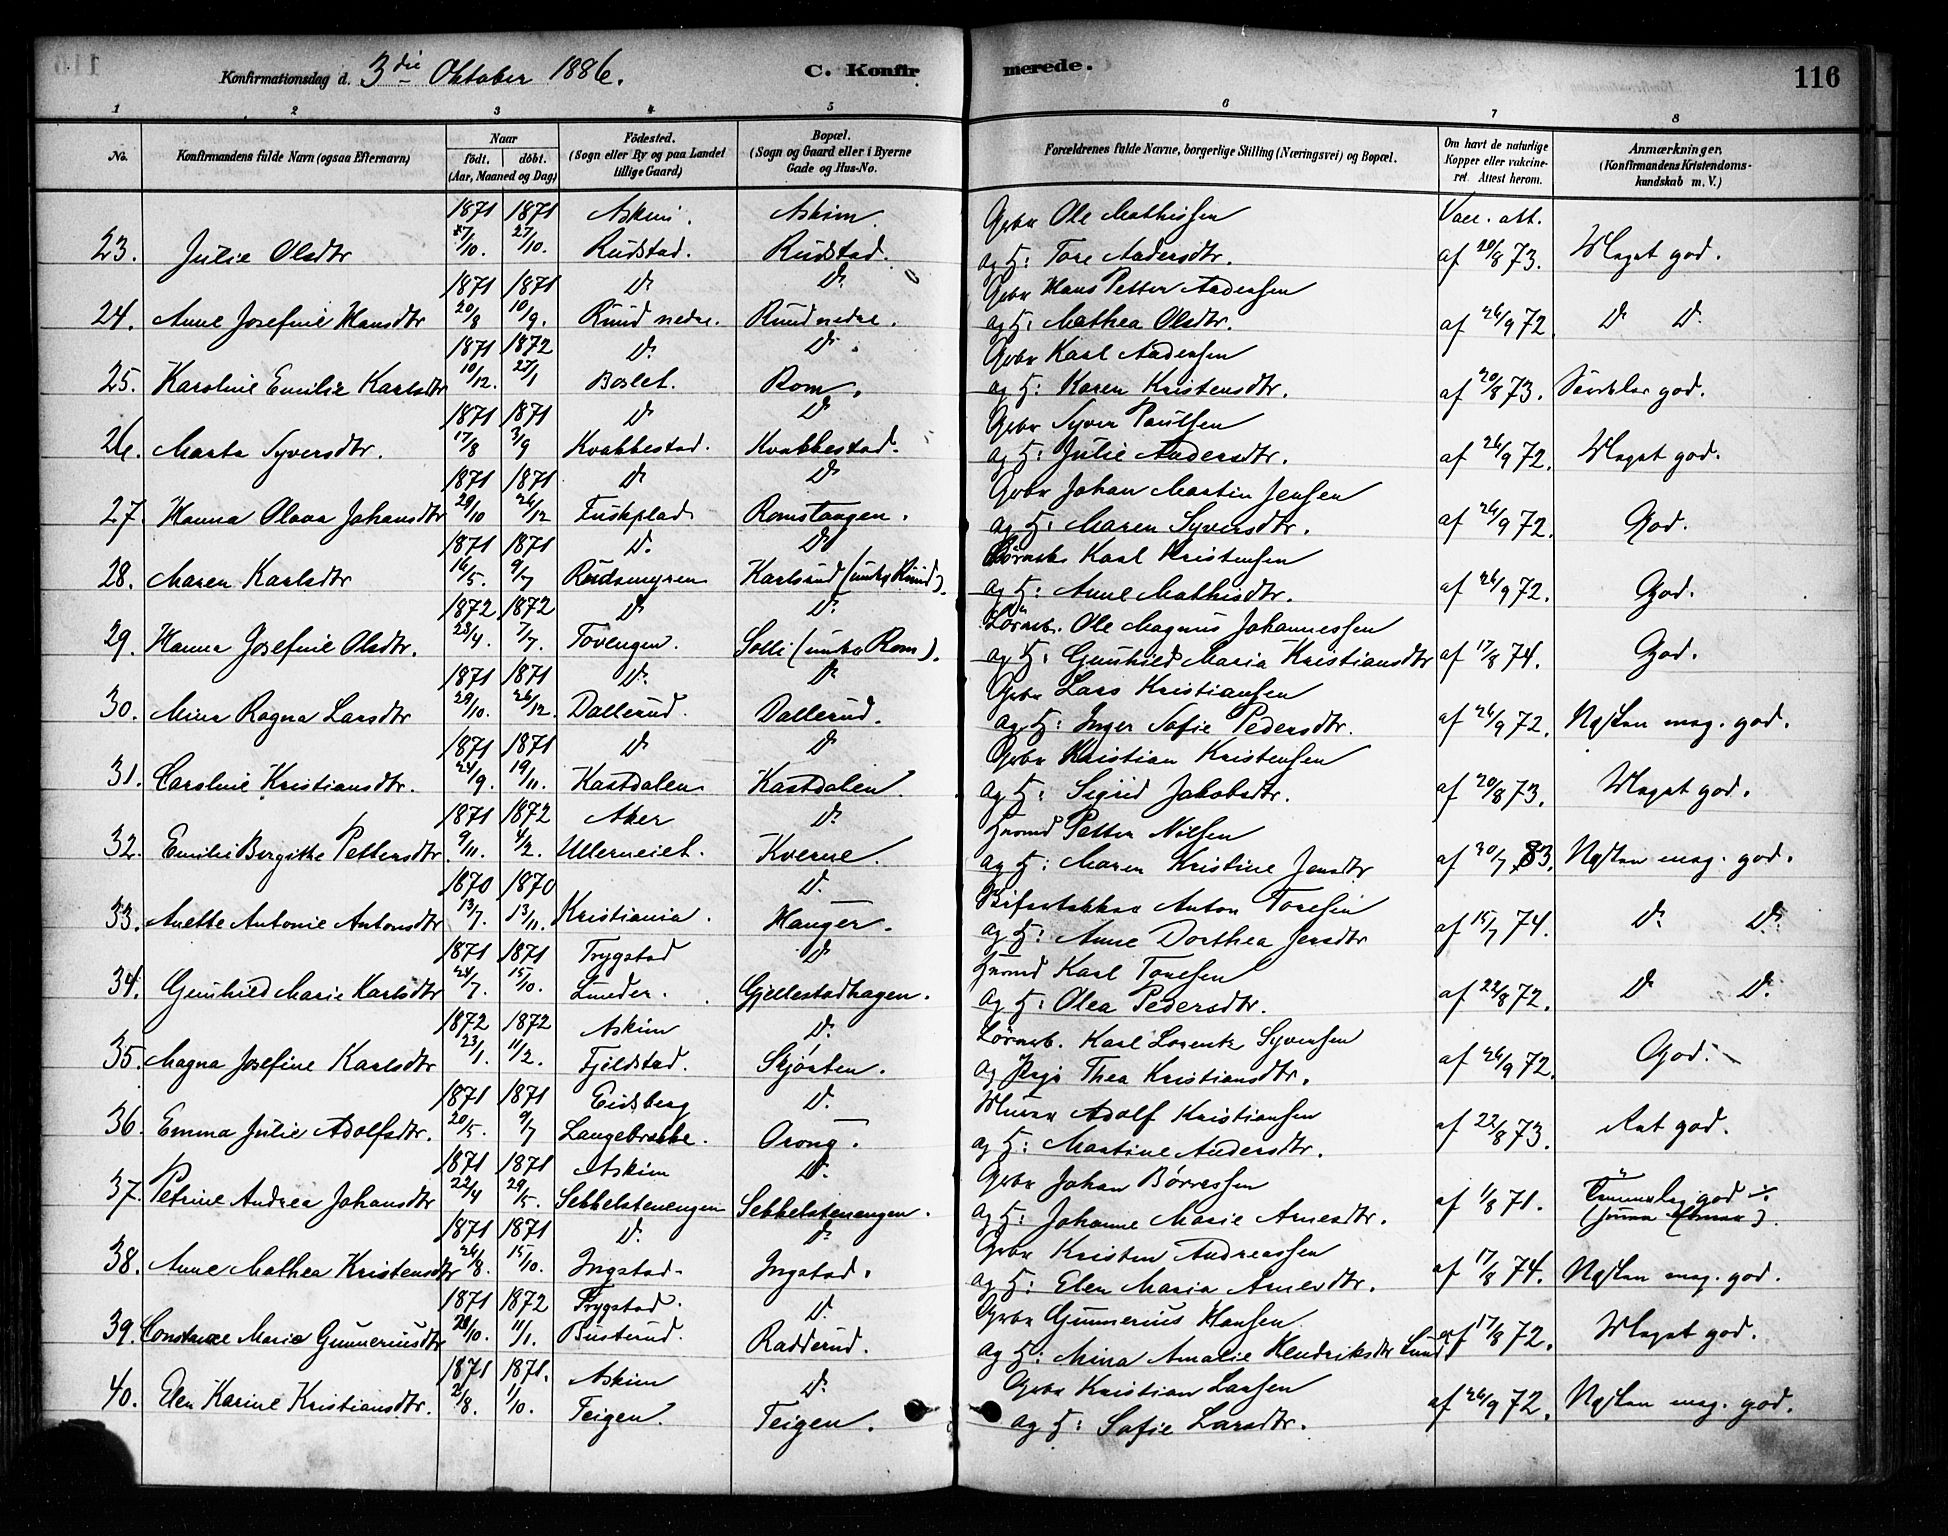 Konfirmationsdag d. 3die Oktober 1886. C. Konfirmerede. 116
1 2 3 4 5 6 7 8
No. Konfirmandens fulde Navn (ogsaa Efternavn) Naar født. døbt. (Aar, Maaned og Dag) Födested. (Sogn eller By og paa Landet tillige Gaard) Bopæl. (Sogn og Gaard eller i Byerne Gade og Hus-No. Forældrenes fulde Navne, borgerlige Stilling (Næringsvei) og Bopæl. Om havt de naturlige Kopper eller vakcineret. Attest herom. Anmærkninger, (Konfirmandens Kristendomskundskab m. V.)
1871 1871 Askim. Askim. Gbr Ole Mathissen Vacc. att.
23. Julie Olsdtr 27/10. 27/10. Rudstad. Rudstad. og H: Tore Andersdtr. af 20/8 73. Meget god.
1871 1871 Do Do Gbr Hans Petter Andersen
24. Anne Josefine Hansdtr 20/8 10/9. Ruud nedre. Ruud nedre. og H: Mathea Olsdtr. af 26/9 72. Do Do
1871 1872 Do Do Gbr Karl Andersen
25. Karoline Emilie Karlsdtr 10/12. 27/1 Boslet. Rom. og H: Karen Kristensdtr. af 20/8 73. Særdeles god.
1871 1871 Do Do Gbr Syver Paulsen
26. Marta Syversdtr. 17/8 3/9 Kvakkestad. Kvakkestad. og H: Julie Andersdtr. af 26/9 72. Meget god.
1871 1871 Do Do Gbr Johan Martin Jensen
27. Hanna Olava Johansdtr 29/10 26/12 Huskplads Romstangen. og H: Maren Syversdtr. af 26/9 72. God.
1871 1871 Do Do Karl Kristensen
28. Maren Karlsdtr 16/5. 9/7 Rudsmyren Karlsrud (under Ruud). og H: Anne Mathisdtr. af 26/9 72. God.
1872 1872 Do Do Lörnsb. Ole Magnus Johannessen
29. Hanna Josefine Olsdtr. 28/4. 7/7. Tovengen. Solli (under Rom). og H: Gunhild Maria Kristiansdtr af 17/8 74. God.
1871 1871 Do Do Gbr Lars Kristiansen
30. Mina Ragna Larsdtr 29/10. 26/12. Dallerud. Dallerud. og H: Inger Sofie Pedersdtr. af 26/9 72. Næsten meg. god.
1871 1871 Do Do Gbr Kristian Kristensen
31. Caroline Kristiansdtr. 24/9. 19/11. Kastdalen Kastdalen. og H: Sigrid Jakobsdtr. af 20/8 73. Meget god.
1871 1872 Aker Do Husmd Petter Nilsen
32. Emilie Bergithe Pettersdtr 9/11. 4/2. Ullerneiet. Kverne. og H: Maren Kristine Jensdtr af 30/7 83. Næsten meg. god.
1870 1870 Do Anton Toresen
33. Anette Antonie Antonsdtr 13/7. 13/11. Kristiania. Hauger. og H: Anne Dorthea Jensdtr af 15/7 74. Do Do
1871 1871 Trygstad Do Husmd Karl Toresen
34. Gunhild Marie Karlsdtr 24/7. 15/10. Lunder. Gjellestadhagen. og H: Olea Pedersdtr. af 22/8 72. Do Do
1872 1872 Askim Do Lørnsb. Karl Lorentz Syversen
35. Magna Josefine Karlsdtr 23/1. 11/2. Fjeldstad. Skjørten. og Pige Thea Kristiansdtr. af 26/9 72. God.
1871 1871 Eidsberg Do Murer Adolf Kristiansen
36. Emma Julie Adolfsdtr. 20/5. 9/7 Langebrække. Orong. og H: Martine Andersdtr. af 22/8 73. Ret god.
1871 1871 Askim Do Gbr Johan Børresen
37. Petrine Andrea Johansdtr 22/4 29/5. Sekkelstenengen Sekkelstenengen. og H: Johanne Marie Arnesdtr. af 1/8 71. god
1871 1871 Do Do Gbr Kristen Andreassen
38. Anne Mathea Kristensdtr 26/8. 15/10. Ingstad. Ingstad. og H: Elen Maria Arnesdtr. af 17/8 74. Næsten meg. god.
1871 1872 Trygstad. Do Gbr Gunnerius Hansen.
39. Constance Marie Gunneriusdtr 28/10. 11/1. Busterud. Radderud. og H: Mina Amalie Hendriksdtr Lund af 17/8 72. Meget god.
1871 1871. Askim Do Gbr Kristian Larsen
40. Elen Karine Kristiansdtr. 21/8. 1/10. Teigen. Teigen. og H: Sofie Larsdtr. af 26/9 72. Næsten meg. god.